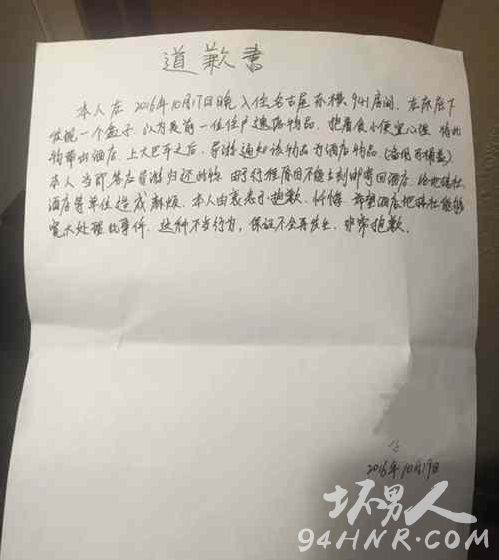 道歉書
本人在2016年10月17日晚入住名古屋东横941房间，在床底下
发现一个盒子，以为是前一位住户遗落物品，抱着贪小便宜心理，将此
物带出酒店，上大巴车之后，导游通知该物品为酒店物品，(备用马桶盖)
本人当即答应导游归还此物，由于行程原因不能立刻邮寄回酒店，给地接社
酒店等单位造成麻烦，本人由衷表示抱歉，忏悔，希望酒店地接社能够
宽大处理此事件，这种不当行为，保证不会再发生，非常抱歉。
2016年10月19日
坏男人
94HNR.COM